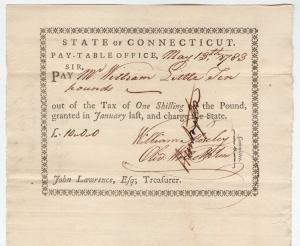 STATE OF CONNECTICUT.
PAY-TABLE OFFICE, May 13th 1783
SIR,
PAY Mr William Little Ten
pounds
out of the Tax of One Shilling on the Pound,
granted in January last, and charge the State.
£. 10.0.0
William
John Lawrence, Esq; Treasurer.